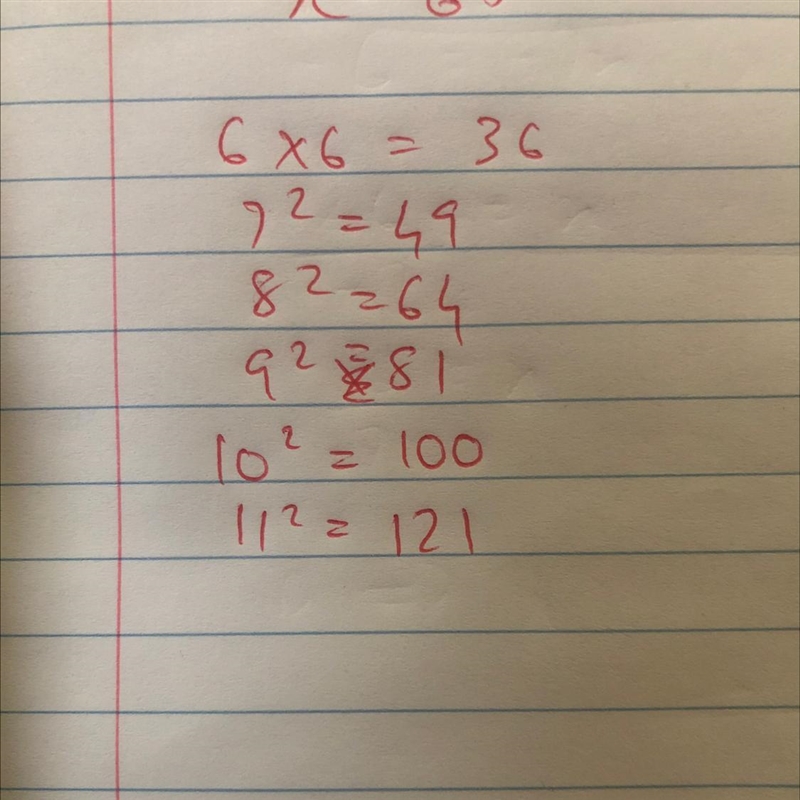 6 × 6 = 36
7² = 49
8² = 64
9² = 81
10² = 100
11² = 121